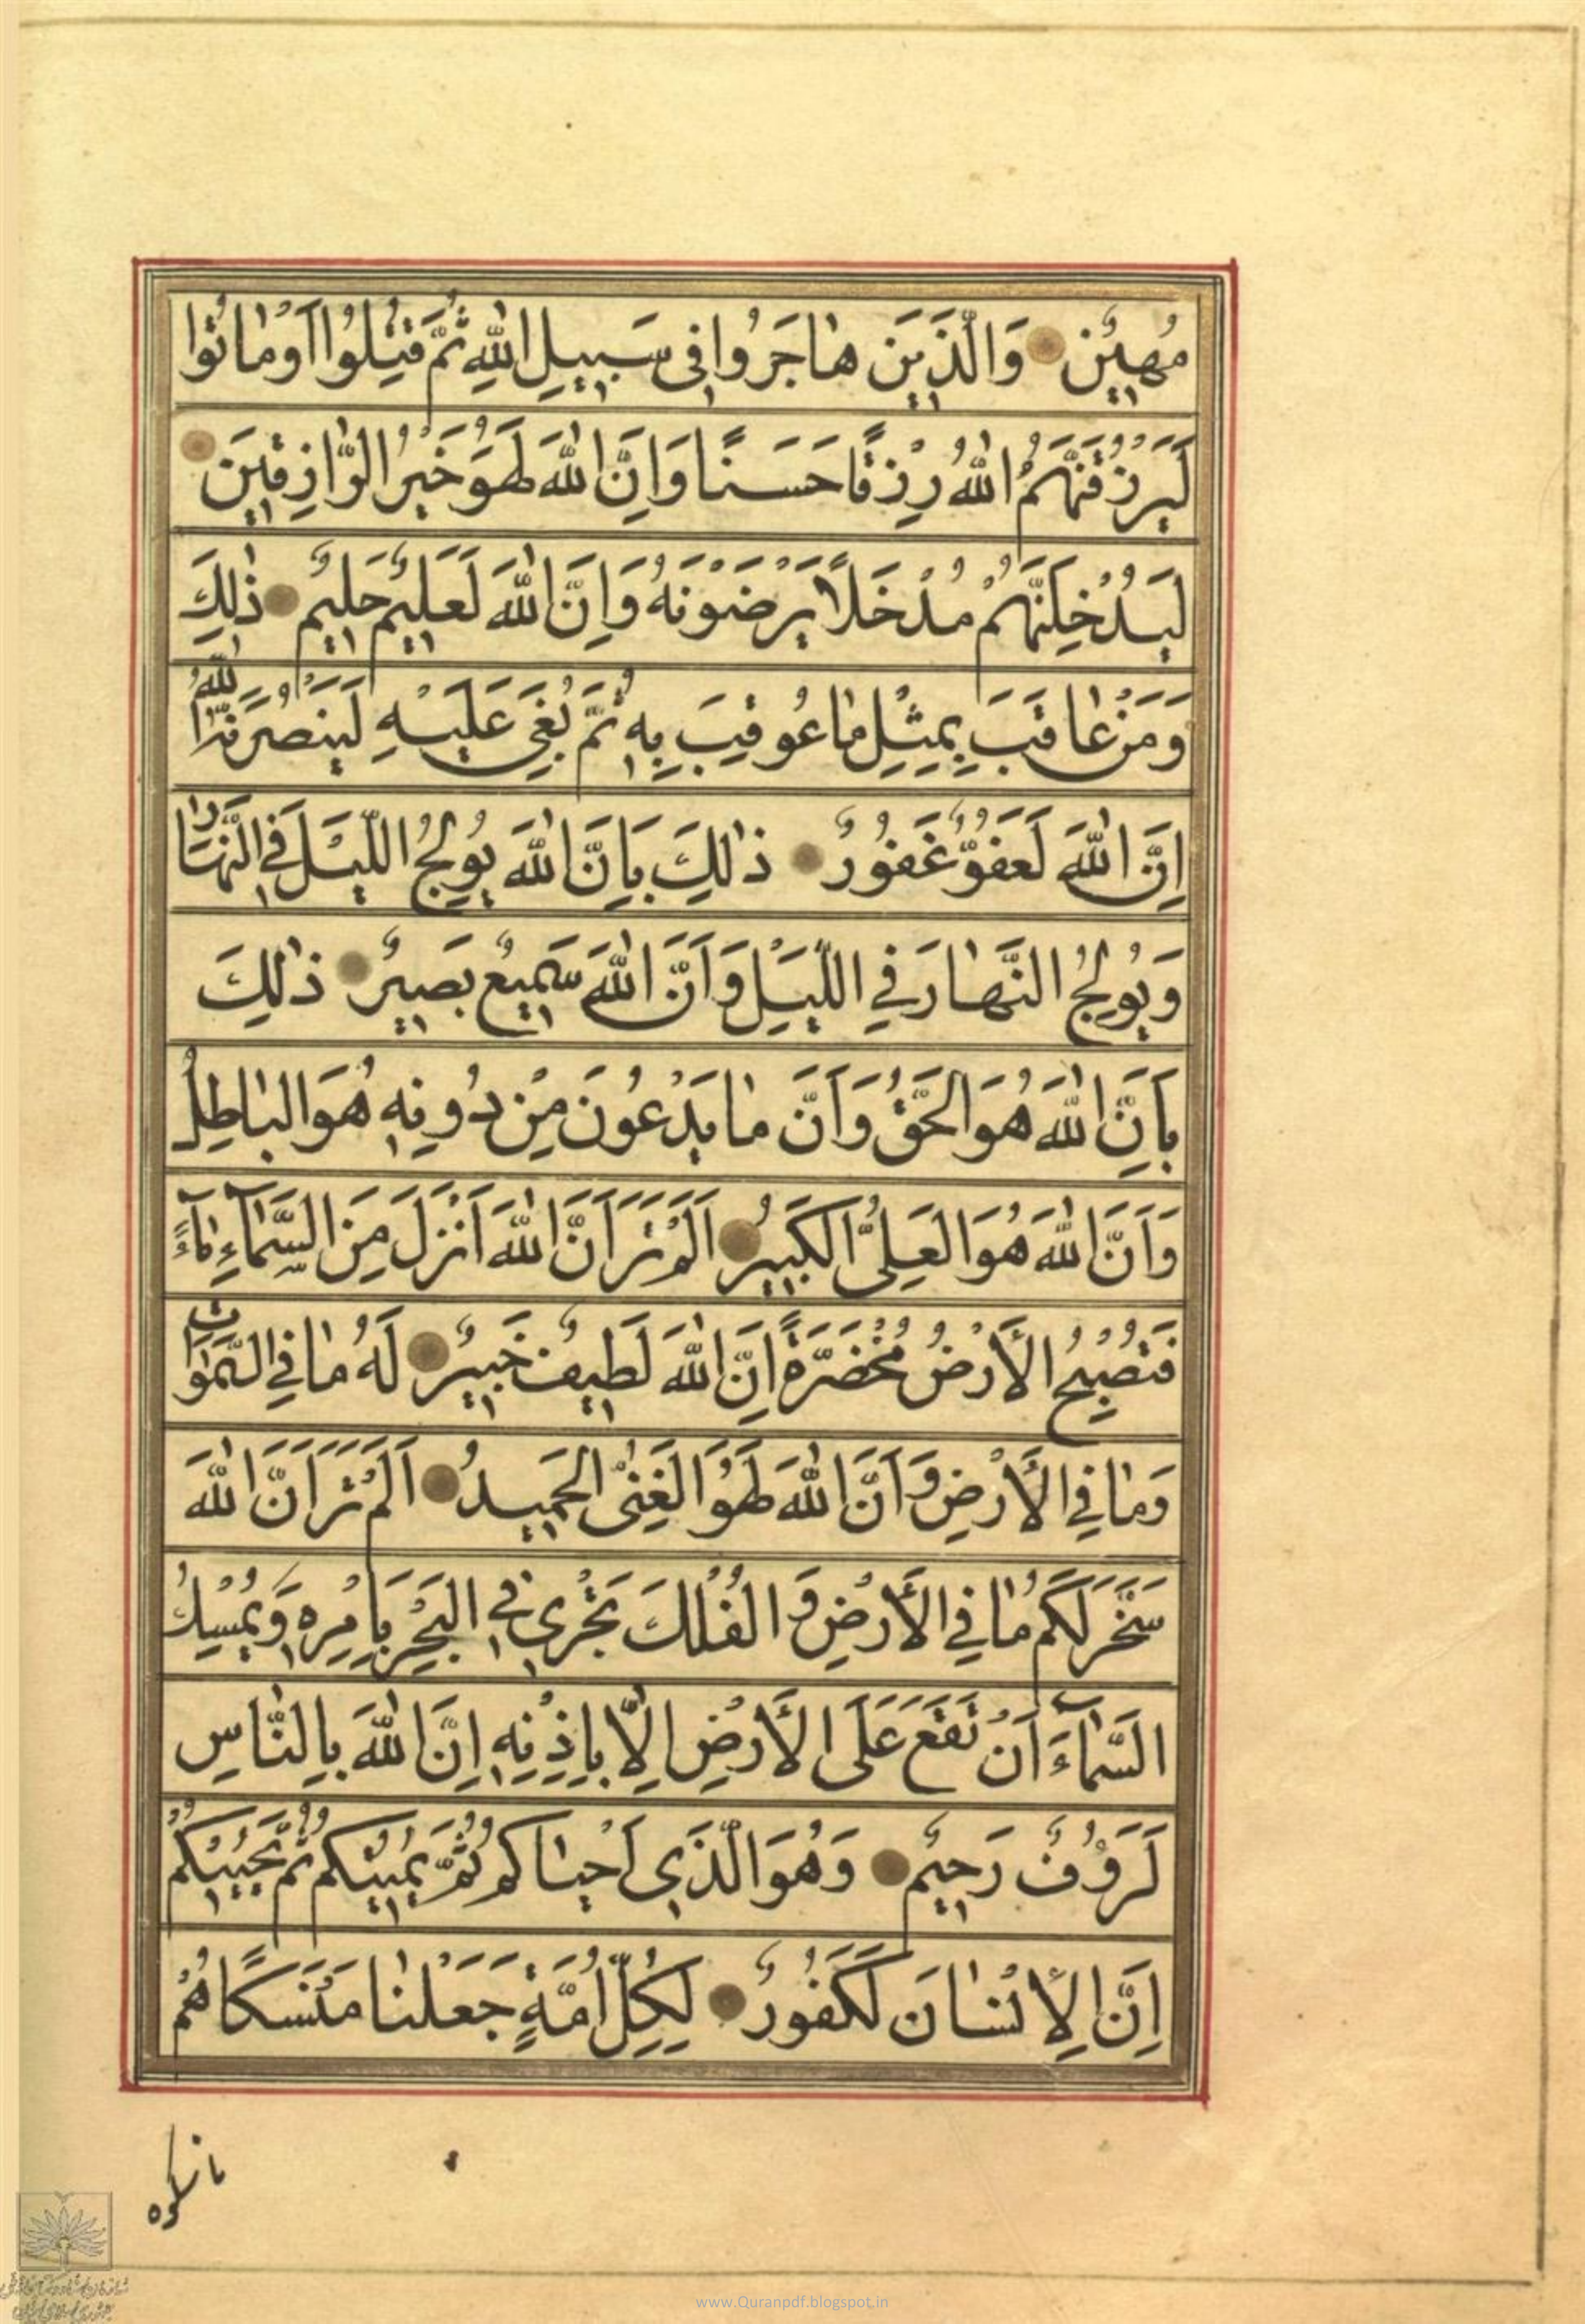 مُهِينٌ وَالَّذِينَ هَاجَرُوا فِى سَبِيلِ اللهِ ثُمَّ قُتِلُوا اَوْ مَاتُوا
لَيَرْزُقَنَّهُمُ اللهُ رِزْقًا حَسَنًا وَاِنَّ اللهَ لَهُوَ خَيْرُ الرَّازِقِينَ
لَيُدْخِلَنَّهُمْ مُدْخَلًا يَرْضَوْنَهُ وَاِنَّ اللهَ لَعَلِيمٌ حَلِيمٌ ذٰلِكَ
وَمَنْ عَاقَبَ بِمِثْلِ مَا عُوقِبَ بِهِ ثُمَّ بُغِىَ عَلَيْهِ لَيَنْصُرَنَّهُ اللهُ
اِنَّ اللهَ لَعَفُوٌّ غَفُورٌ ذٰلِكَ بِاَنَّ اللهَ يُولِجُ اللَّيْلَ فِي النَّهَارِ
وَيُولِجُ النَّهَارَ فِي اللَّيْلِ وَاَنَّ اللهَ سَمِيعٌ بَصِيرٌ ذٰلِكَ
بِاَنَّ اللهَ هُوَ الْحَقُّ وَاَنَّ مَا يَدْعُونَ مِنْ دُونِهِ هُوَ الْبَاطِلُ
وَاَنَّ اللهَ هُوَ الْعَلِىُّ الْكَبِيرُ اَلَمْ تَرَ اَنَّ اللهَ اَنْزَلَ مِنَ السَّمَآءِ مَآءً
فَتُصْبِحُ الْأَرْضُ مُخْضَرَّةً اِنَّ اللهَ لَطِيفٌ خَبِيرٌ لَهُ مَا فِي السَّمٰوَاتِ
وَمَا فِي الْأَرْضِ وَاَنَّ اللهَ لَهُوَ الْغَنِىُّ الْحَمِيدُ اَلَمْ تَرَ اَنَّ اللهَ
سَخَّرَ لَكُمْ مَا فِي الْأَرْضِ وَ الْفُلْكَ تَجْرِي فِي الْبَحْرِ بِاَمْرِهِ وَيُمْسِكُ
السَّمَآءَ اَنْ تَقَعَ عَلَى الْأَرْضِ اِلَّا بِاِذْنِهِ اِنَّ اللهَ بِالنَّاسِ
لَرَؤُفٌ رَحِيمٌ وَهُوَ الَّذِي اَحْيَاكُمْ ثُمَّ يُمِيتُكُمْ ثُمَّ يُحْيِيكُمْ
اِنَّ الْاِنْسَانَ لَكَفُورٌ لِكُلِّ اُمَّةٍ جَعَلْنَا مَنْسَكًا هُمْ
ناسكوه
www.Quranpdf.blogspot.in